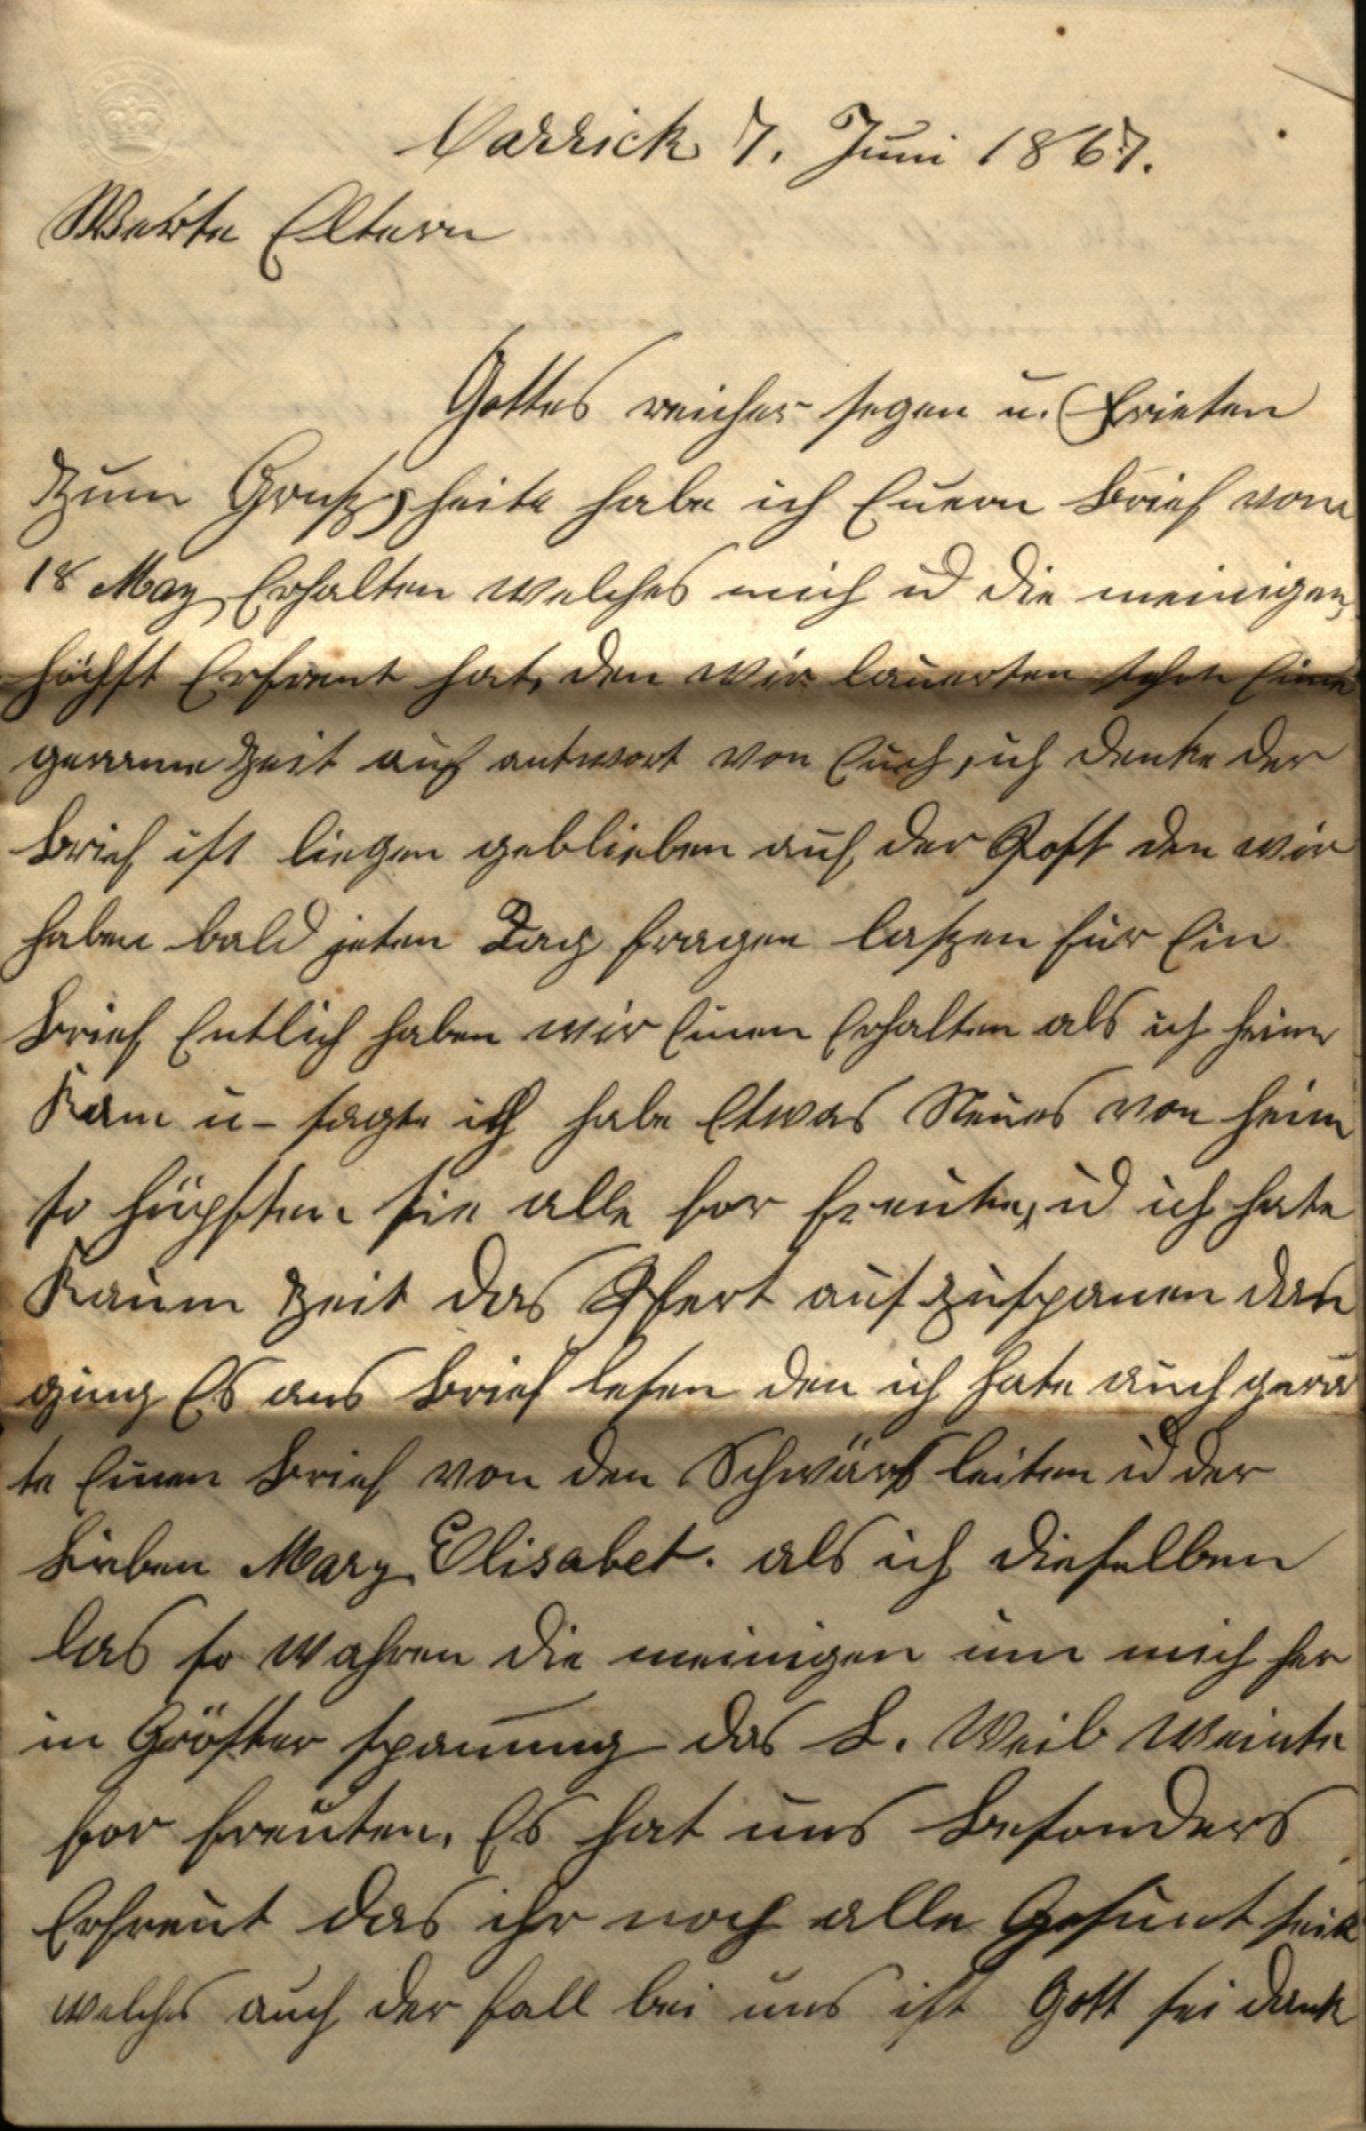 Carrick 7. Juni 1867.
Werte Eltern
Gottes reicher segen u. Frieten
zum Gruß, heite habe ich Euern Brief vom
18 May Erhalten welches mich ud die meinigen
höchst Erfreut hat, den wir lauerten schon Eine
geraume zeit auf antwort von Euch, ich denke der
Brief ist liegen geblieben auf der Post den wir
haben bald jeten Tag fragen laßen für Ein
Brief Entlich haben wir Einen Erhalten als ich heim
Kam u- sagte ich habe Etwas Neues von heim
so hüpften sie alle for freute, ud ich hate
Kaum zeit das Pfert aus zuspanen dan
ging Es ans Brief lesen den ich hate auch gera
te Einen Brief von den Schwärs leiten ud der
Lieben Mary Elisabet. als ich dieselben
las so wahren die meinigen um mich her
in Gröster spanung das L. Weib Weinte
for freuten. Es hat uns Besonders
Erfreut das ihr noch alle Gesunt seit
welches auch der fall bei uns ist Gott sei dank